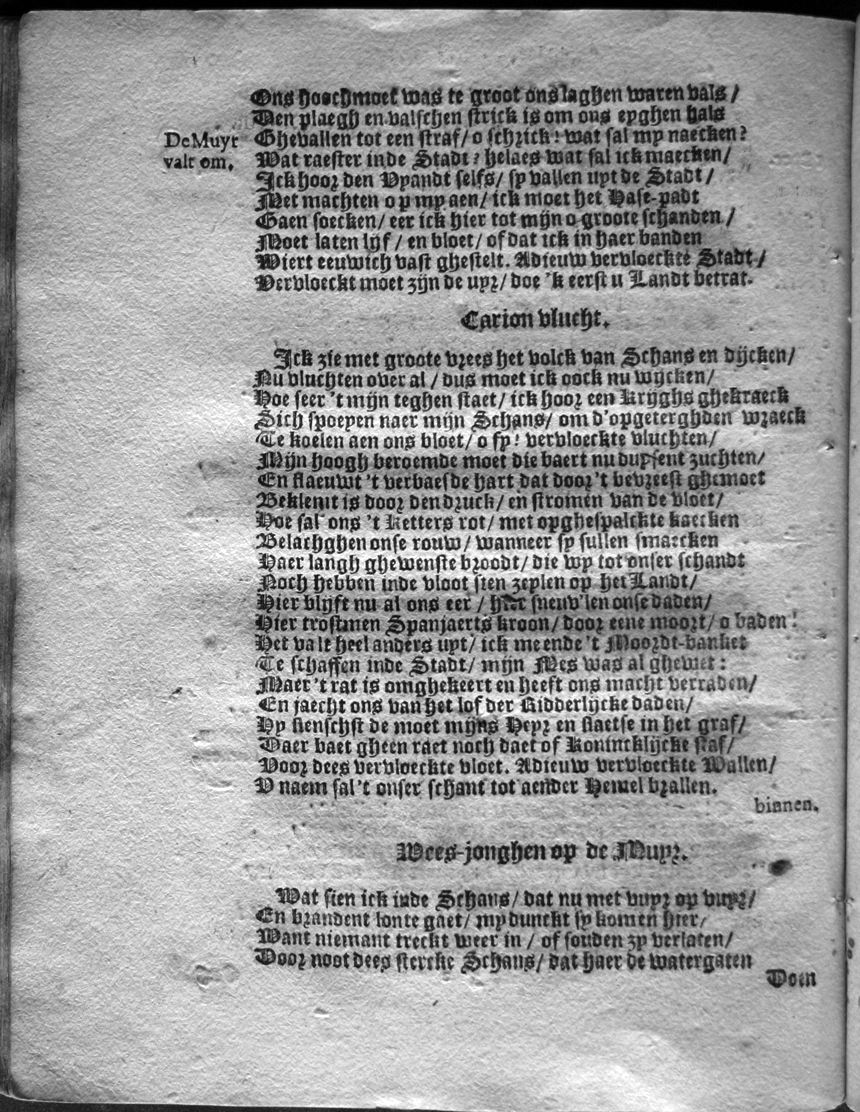 Ons hoochmoet was te groot ons laghen waren vals /
Den plaegh en valschen strick is om ons eyghen hals
De Muyr
Ghevallen tot een straf / o schrick! wat sal my naecken?
valt om.
Wat raester inde Stadt? helaes wat sal ick maecken /
Ick hoor den Vyandt selfs / sy vallen uyt de Stadt /
Met machten op my aen / ick moet het Hase-padt
Gaen soecken / eer ick hier tot mijn o groote schanden /
Moet laten lijf / en bloet / of dat ick in haer banden
Wiert eeuwich vast ghestelt. Adieuw vervloeckte Stadt /
Vervloeckt moet zijn de uyr / doe 'k eerst u Landt betrat.
Carion vlucht.
Ick zie met groote vrees het volck van Schans en dijcken /
Nu vluchten over al / dus moet ick oock nu wijcken /
Hoe seer 't mijn teghen staet / ick hoor een Kryghs ghekraeck
Sich spoeyen naer mijn Schans / om d'opgeterghden wraeck
Te koelen aen ons bloet / o fy! vervloeckte vluchten /
Mijn hoogh beroemde moet die baert nu duysent zuchten /
En flaeuwt 't verbaesde hart dat door 't bevreest ghemoet
Beklemt is door den druck / en stromen van de vloet /
Hoe sal ons 't Ketters rot / met opghespalckte kaecken
Belachghen onse rouw / wanneer sy sullen smaecken
Haer langh ghewenste broodt / die wy tot onser schandt
Noch hebben inde vloot sien zeylen op het Landt /
Hier blijft nu al ons eer / hier sneuv'len onse daden /
Hier trostmen Spanjaerts kroon / door eene moort / o baden!
Het valt heel anders uyt / ick meende 't Moordt-banket
Te schaffen inde Stadt / mijn Mes was al ghewet:
Maer 't rat is omghekeert en heeft ons macht verraden /
En jaecht ons van het lof der Ridderlijcke daden /
Hy sienschst de moet mijns Heyr en slaetse in het graf /
Daer baet gheen raet noch daet of Konincklijcke staf /
Voor dees vervloeckte vloet. Adieuw vervloeckte Wallen /
V naem sal 't onser schant tot aender Hemel brallen.
binnen.
Wees-jonghen op de Muyr.
Wat sien ick inde Schans / dat nu met vuyr op vuyr /
En brandent lonte gaet / my dunckt sy komen hier /
Want niemant treckt weer in / of souden zy verlaten /
Door noot dees stercke Schans / dat haer de watergaten
Doen